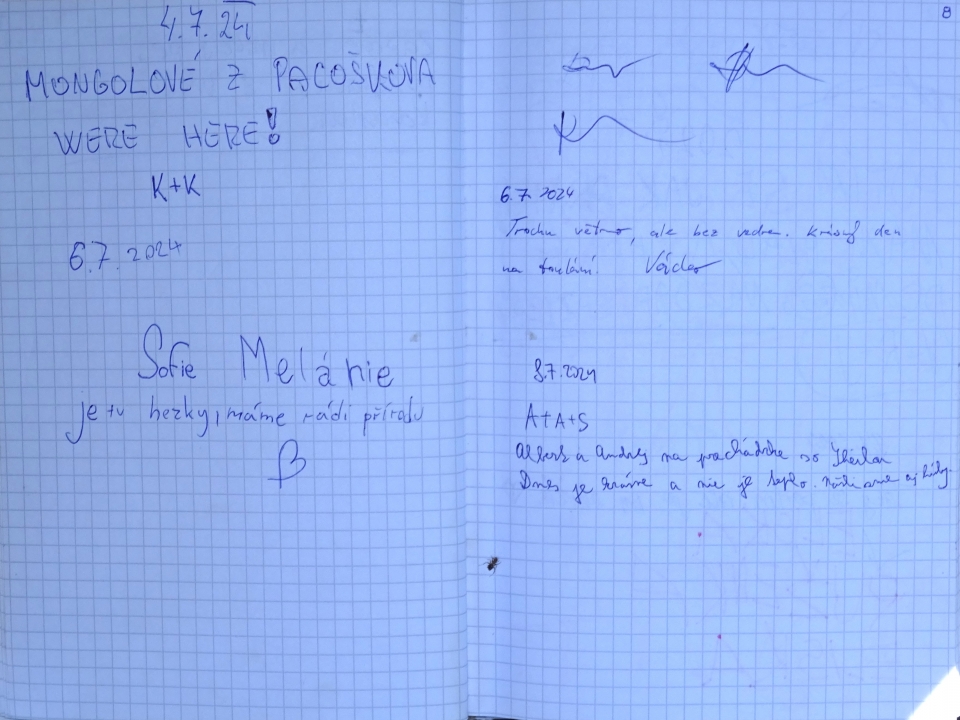 4.7.24
MONGOLOVÉ Z PACOŠKOVA
WERE HERE!
K+K
6.7.2024
Sofie Melánie
je tu hezky, máme rádi přírodu
8
6.7.2024
Trochu větrno, ale bez vedra. Krásný den
na toulání. Václav
8.7.2024
A+A+S
Albert a Andrej na prechádzke so
Dnes je krásne a nie je teplo. Našli sme aj huby.